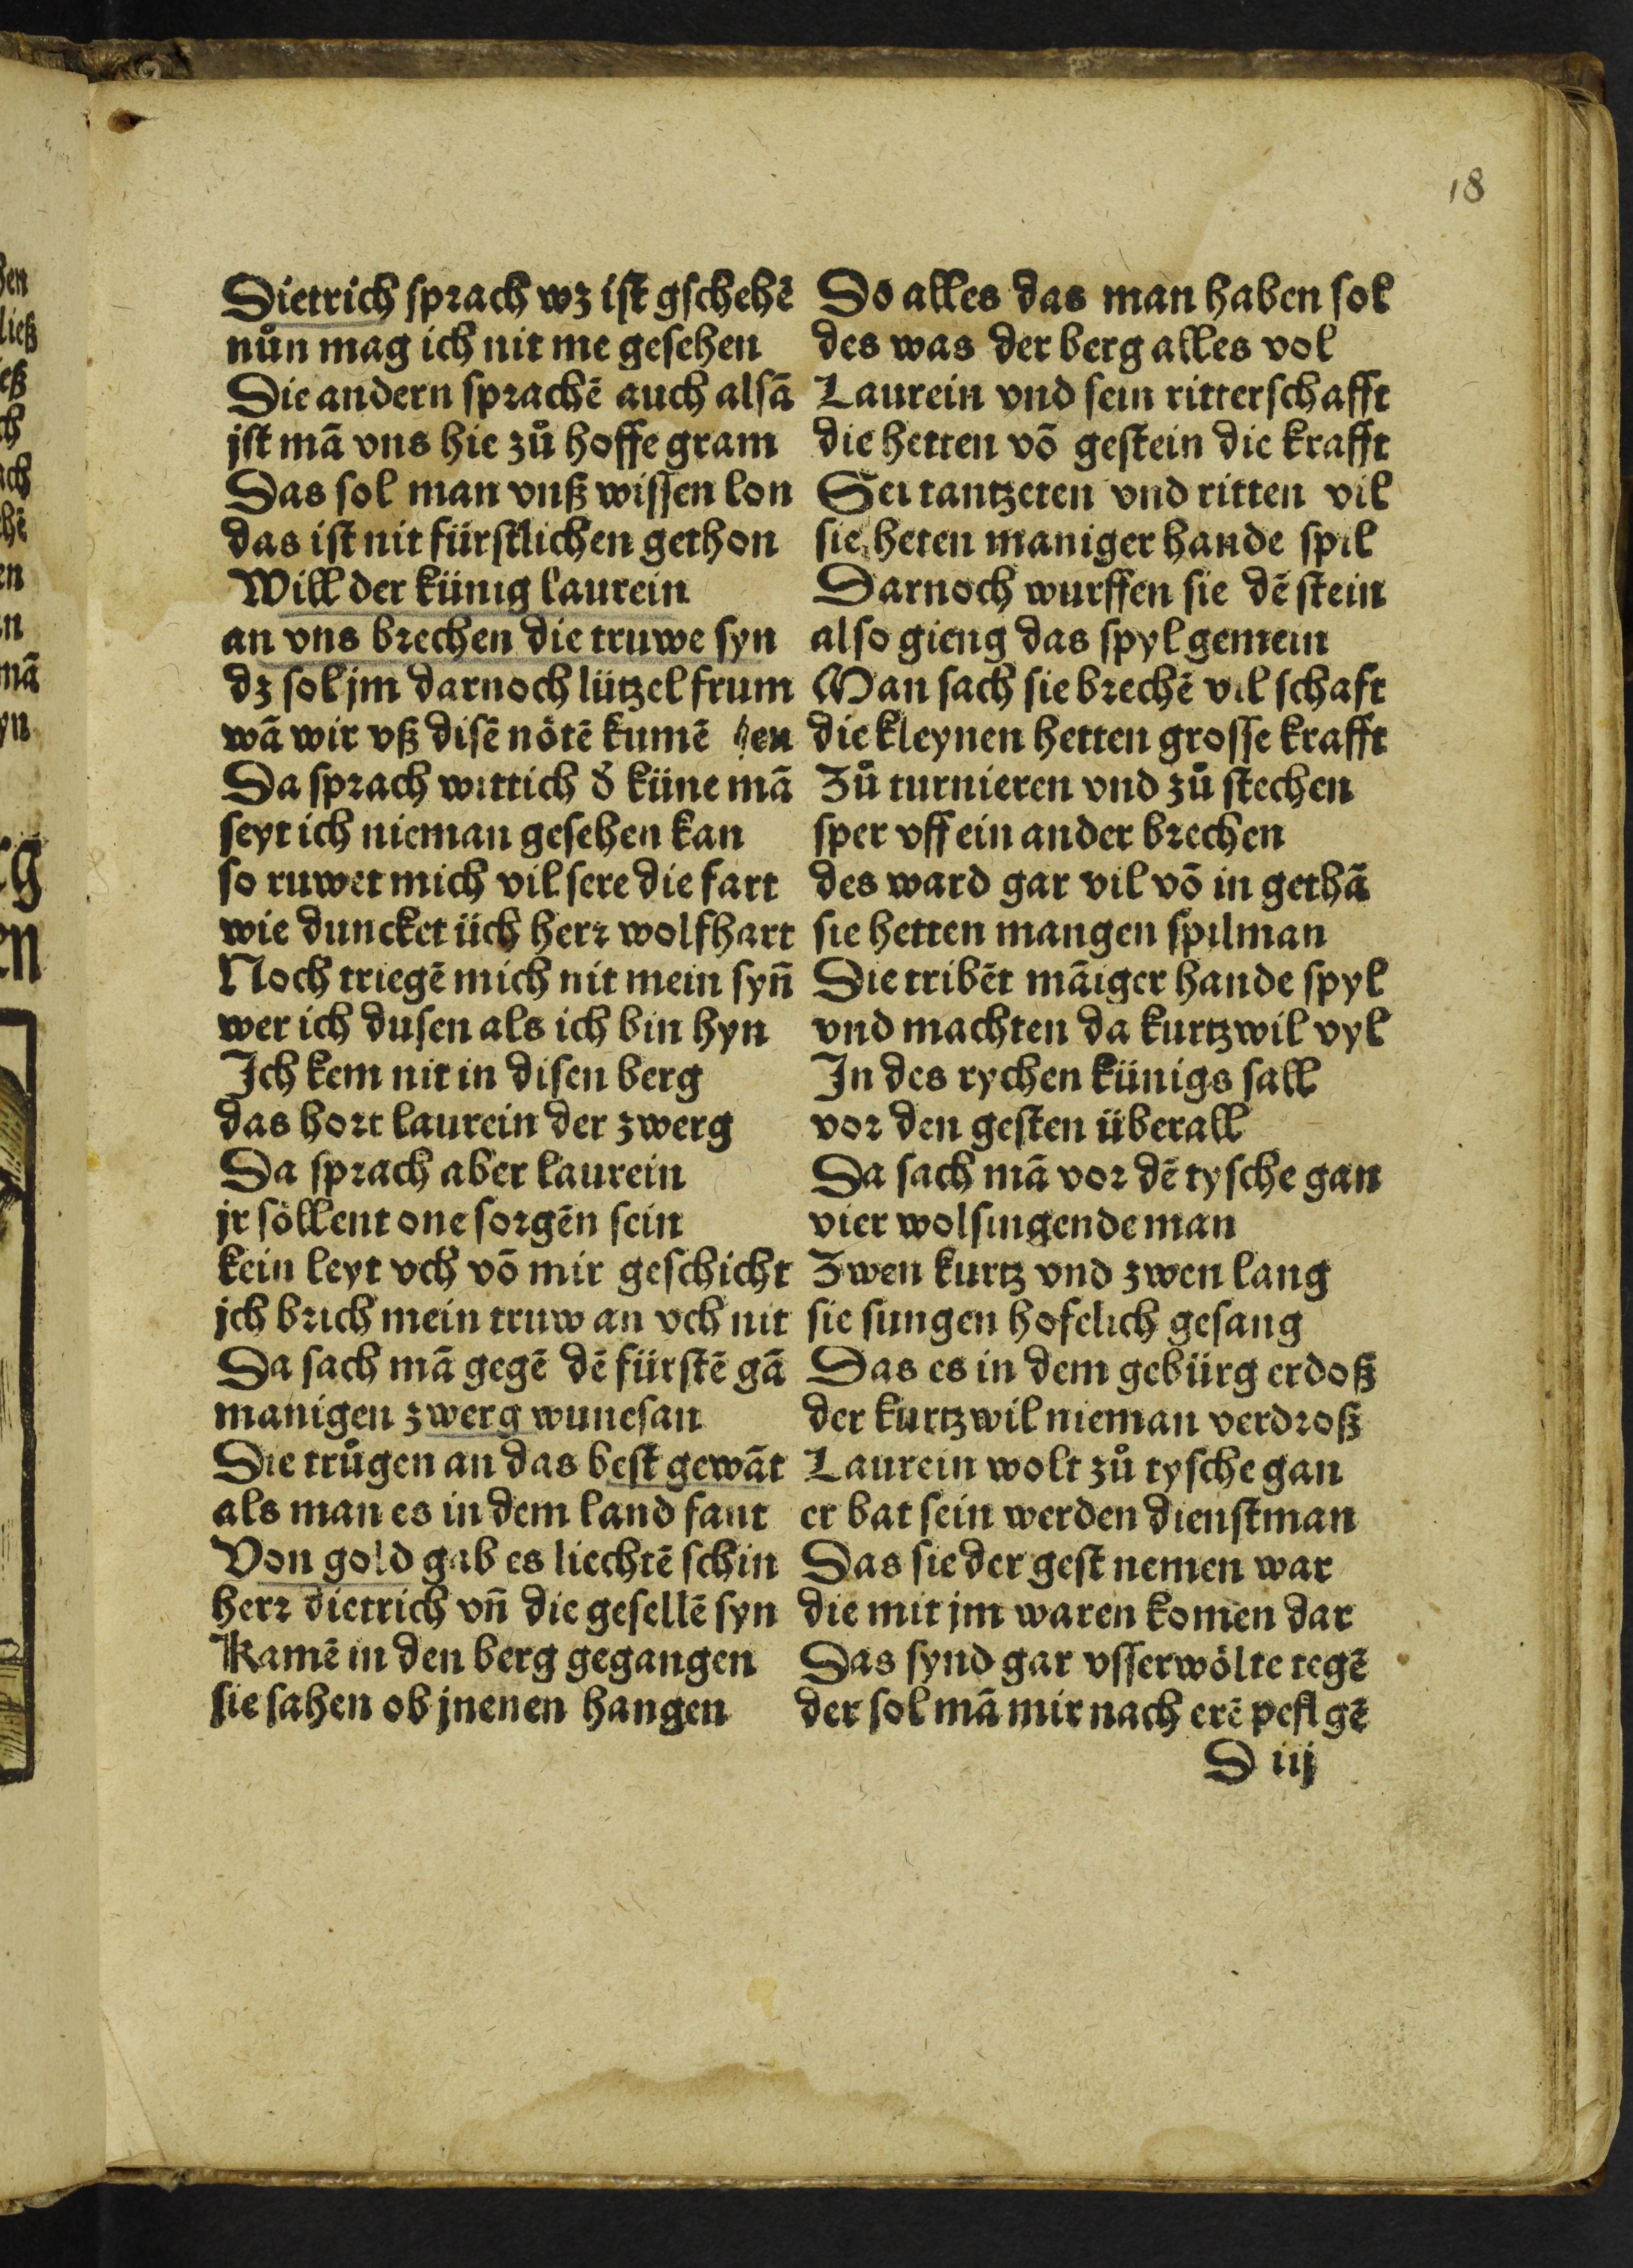 18
Dietrich sprach wz ist gschehē
nůn mag ich nit me gesehen
Die andern sprachē auch alsā
jst mā vns hie zů hoffe gram
Das sol man vnß wissen lon
das ist nit fürstlichen gethon
Will der künig laurein
an vns brechen die truwe syn
dz sol jm darnoch lützel frum
wā wir vß disē nötē kumē hen
Da sprach wittich d̄ küne mā
seyt ich nieman gesehen kan
so ruwet mich vil sere die fart
wie duncket üch herr wolfhart
Noch triegē mich nit mein syn̄
wer ich dusen als ich bin hyn
Ich kem nit in disen berg
das hort laurein der zwerg
Da sprach aber laurein
jr söllent one sorgēn sein
kein leyt vch vō mir geschicht
jch brich mein truw an vch nit
Da sach mā gegē dē fürstē gā
manigen zwerg wunesan
Die trůgen an das best gewāt
als man es in dem land fant
Von gold gab es liechtē schin
herr dietrich vn̄ die gesellē syn
Kamē in den berg gegangen
sie sahen ob jnenen hangen
So alles das man haben sol
des was der berg alles vol
Laurein vnd sein ritterschafft
die hetten vō gestein die krafft
Sei tantzeten vnd ritten vil
sie heten maniger hande spil
Darnoch wurffen sie dē stein
also gieng das spyl gemein
Man sach sie brechē vil schaft
die kleynen hetten grosse krafft
Zů turnieren vnd zů stechen
sper vff ein ander brechen
des ward gar vil vō in gethā
sie hetten mangen spilman
Die tribēt māiger hande spyl
vnd machten da kurtzwil vyl
In des rychen künigs sall
vor den gesten überall
Da sach mā vor dē tysche gan
vier wolsingende man
Zwen kurtz vnd zwen lang
sie sungen hofelich gesang
Das es in dem gebürg erdoß
der kurtzwil nieman verdroß
Laurein wolt zů tysche gan
er bat sein werden dienstman
Das sie der gest nemen war
die mit jm waren komen dar
Das synd gar vsserwölte tegē
der sol mā mir nach erē peflgē
D iij